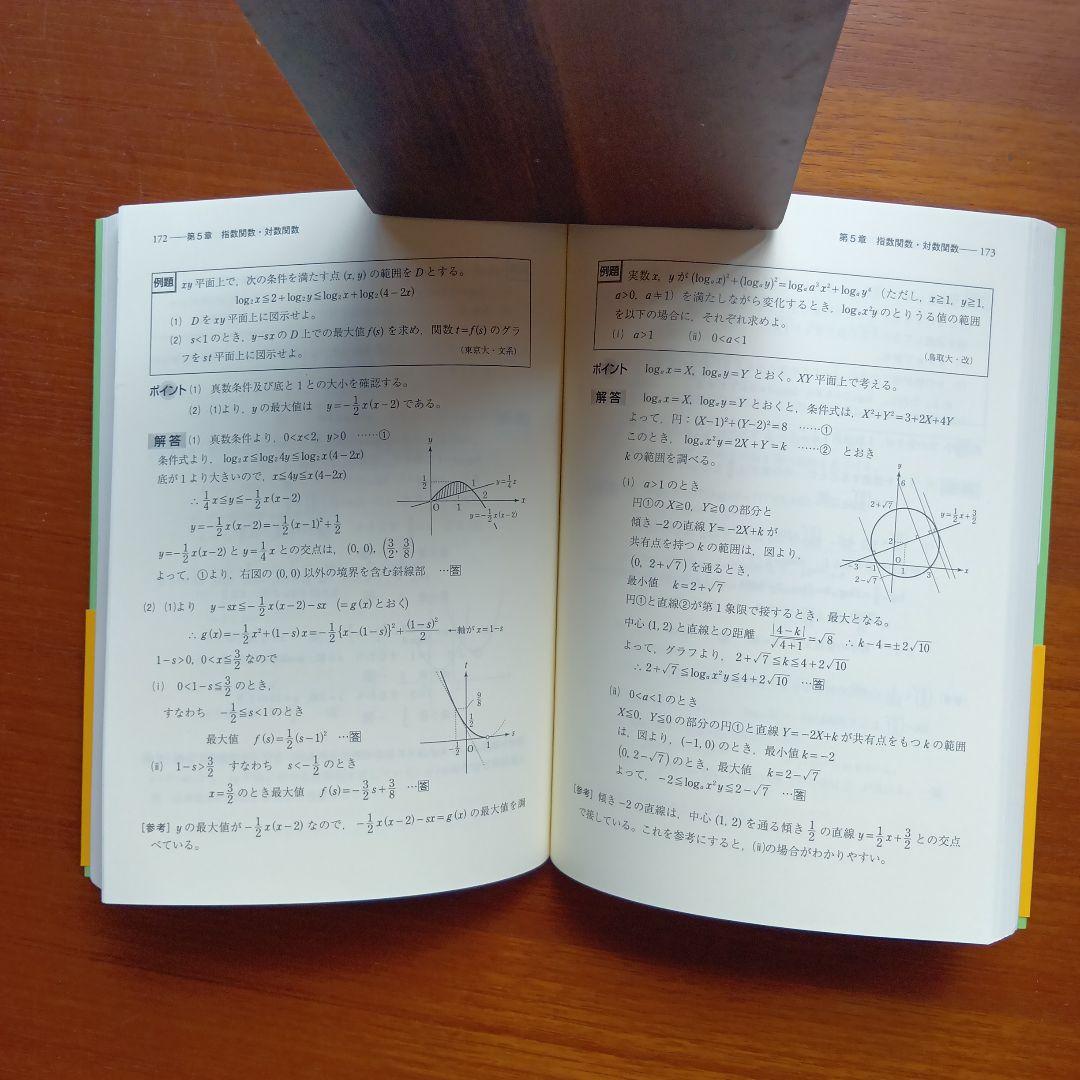 172――第5章 指数関数・対数関数
例題 xy平面上で,次の条件を満たす点(x, y)の範囲をDとする。
log₂x≦2+log₂y≦log₂x+log₂(4−2x)
(1) Dをxy平面上に図示せよ。
(2) s<1のとき,y−sxのD上での最大値f(s)を求め,関数t=f(s)のグラ
フをst平面上に図示せよ。 (東京大・文系)
ポイント (1) 真数条件及び底と1との大小を確認する。
(2) (1)より,yの最大値は y=−1/2x(x−2)である。
解答 (1) 真数条件より,0<x<2, y>0 ……①
条件式より,log₂x≦log₂4y≦log₂x(4−2x)
底が1より大きいので,x≦4y≦x(4−2x)
∴ 1/4x≦y≦−1/2x(x−2)
y=−1/2x(x−2)=−1/2(x−1)²+1/2
y=−1/2x(x−2)とy=1/4xとの交点は,(0, 0), (3/2, 3/8)
よって,①より,右図の(0, 0)以外の境界を含む斜線部 …答
y
1/2
1
y=1/4x
2
O 1 x
y=−1/2x(x−2)
(2) (1)より y−sx≦−1/2x(x−2)−sx (=g(x)とおく)
∴ g(x)=−1/2x²+(1−s)x=−1/2{x−(1−s)}²+(1−s)²/2 ←軸がx=1−s
1−s>0, 0<x≦3/2なので
(i) 0<1−s≦3/2のとき,
すなわち −1/2≦s<1のとき
最大値 f(s)=1/2(s−1)² …答
(ii) 1−s>3/2 すなわち s<−1/2のとき
x=3/2のとき最大値 f(s)=−3/2s+3/8 …答
t
9/8
1/2
−1/2 O 1 s
[参考] yの最大値が−1/2x(x−2)なので,−1/2x(x−2)−sx=g(x)の最大値を調
べている。
第5章 指数関数・対数関数――173
例題 実数x, yが(logₐx)²+(logₐy)²=logₐa³x²+logₐy⁴ (ただし,x≧1, y≧1,
a>0, a≠1)を満たしながら変化するとき,logₐx²yのとりうる値の範囲
を以下の場合に,それぞれ求めよ。
(i) a>1 (ii) 0<a<1 (鳥取大・改)
ポイント logₐx=X, logₐy=Yとおく。XY平面上で考える。
解答 logₐx=X, logₐy=Yとおくと,条件式は,X²+Y²=3+2X+4Y
よって,円:(X−1)²+(Y−2)²=8 ……①
このとき,logₐx²y=2X+Y=k ……② とおき
kの範囲を調べる。
(i) a>1のとき
円①のX≧0, Y≧0の部分と
傾き−2の直線Y=−2X+kが
共有点を持つkの範囲は,図より,
(0, 2+√7)を通るとき,
最小値 k=2+√7
円①と直線②が第1象限で接するとき,最大となる。
y
6
2+√7
y=1/2x+3/2
2
O
−3 −1 1 3 x
2−√7
中心(1, 2)と直線との距離 |4−k|/√4+1=√8 ∴ k−4=±2√10
よって,グラフより,2+√7≦k≦4+2√10
∴ 2+√7≦logₐx²y≦4+2√10 …答
(ii) 0<a<1のとき
X≦0, Y≦0の部分の円①と直線Y=−2X+kが共有点をもつkの範囲
は,図より,(−1, 0)のとき,最小値k=−2
(0, 2−√7)のとき,最大値 k=2−√7
よって,−2≦logₐx²y≦2−√7 …答
[参考] 傾き−2の直線は,中心(1, 2)を通る傾き1/2の直線y=1/2x+3/2との交点
で接している。これを参考にすると,(ii)の場合がわかりやすい。